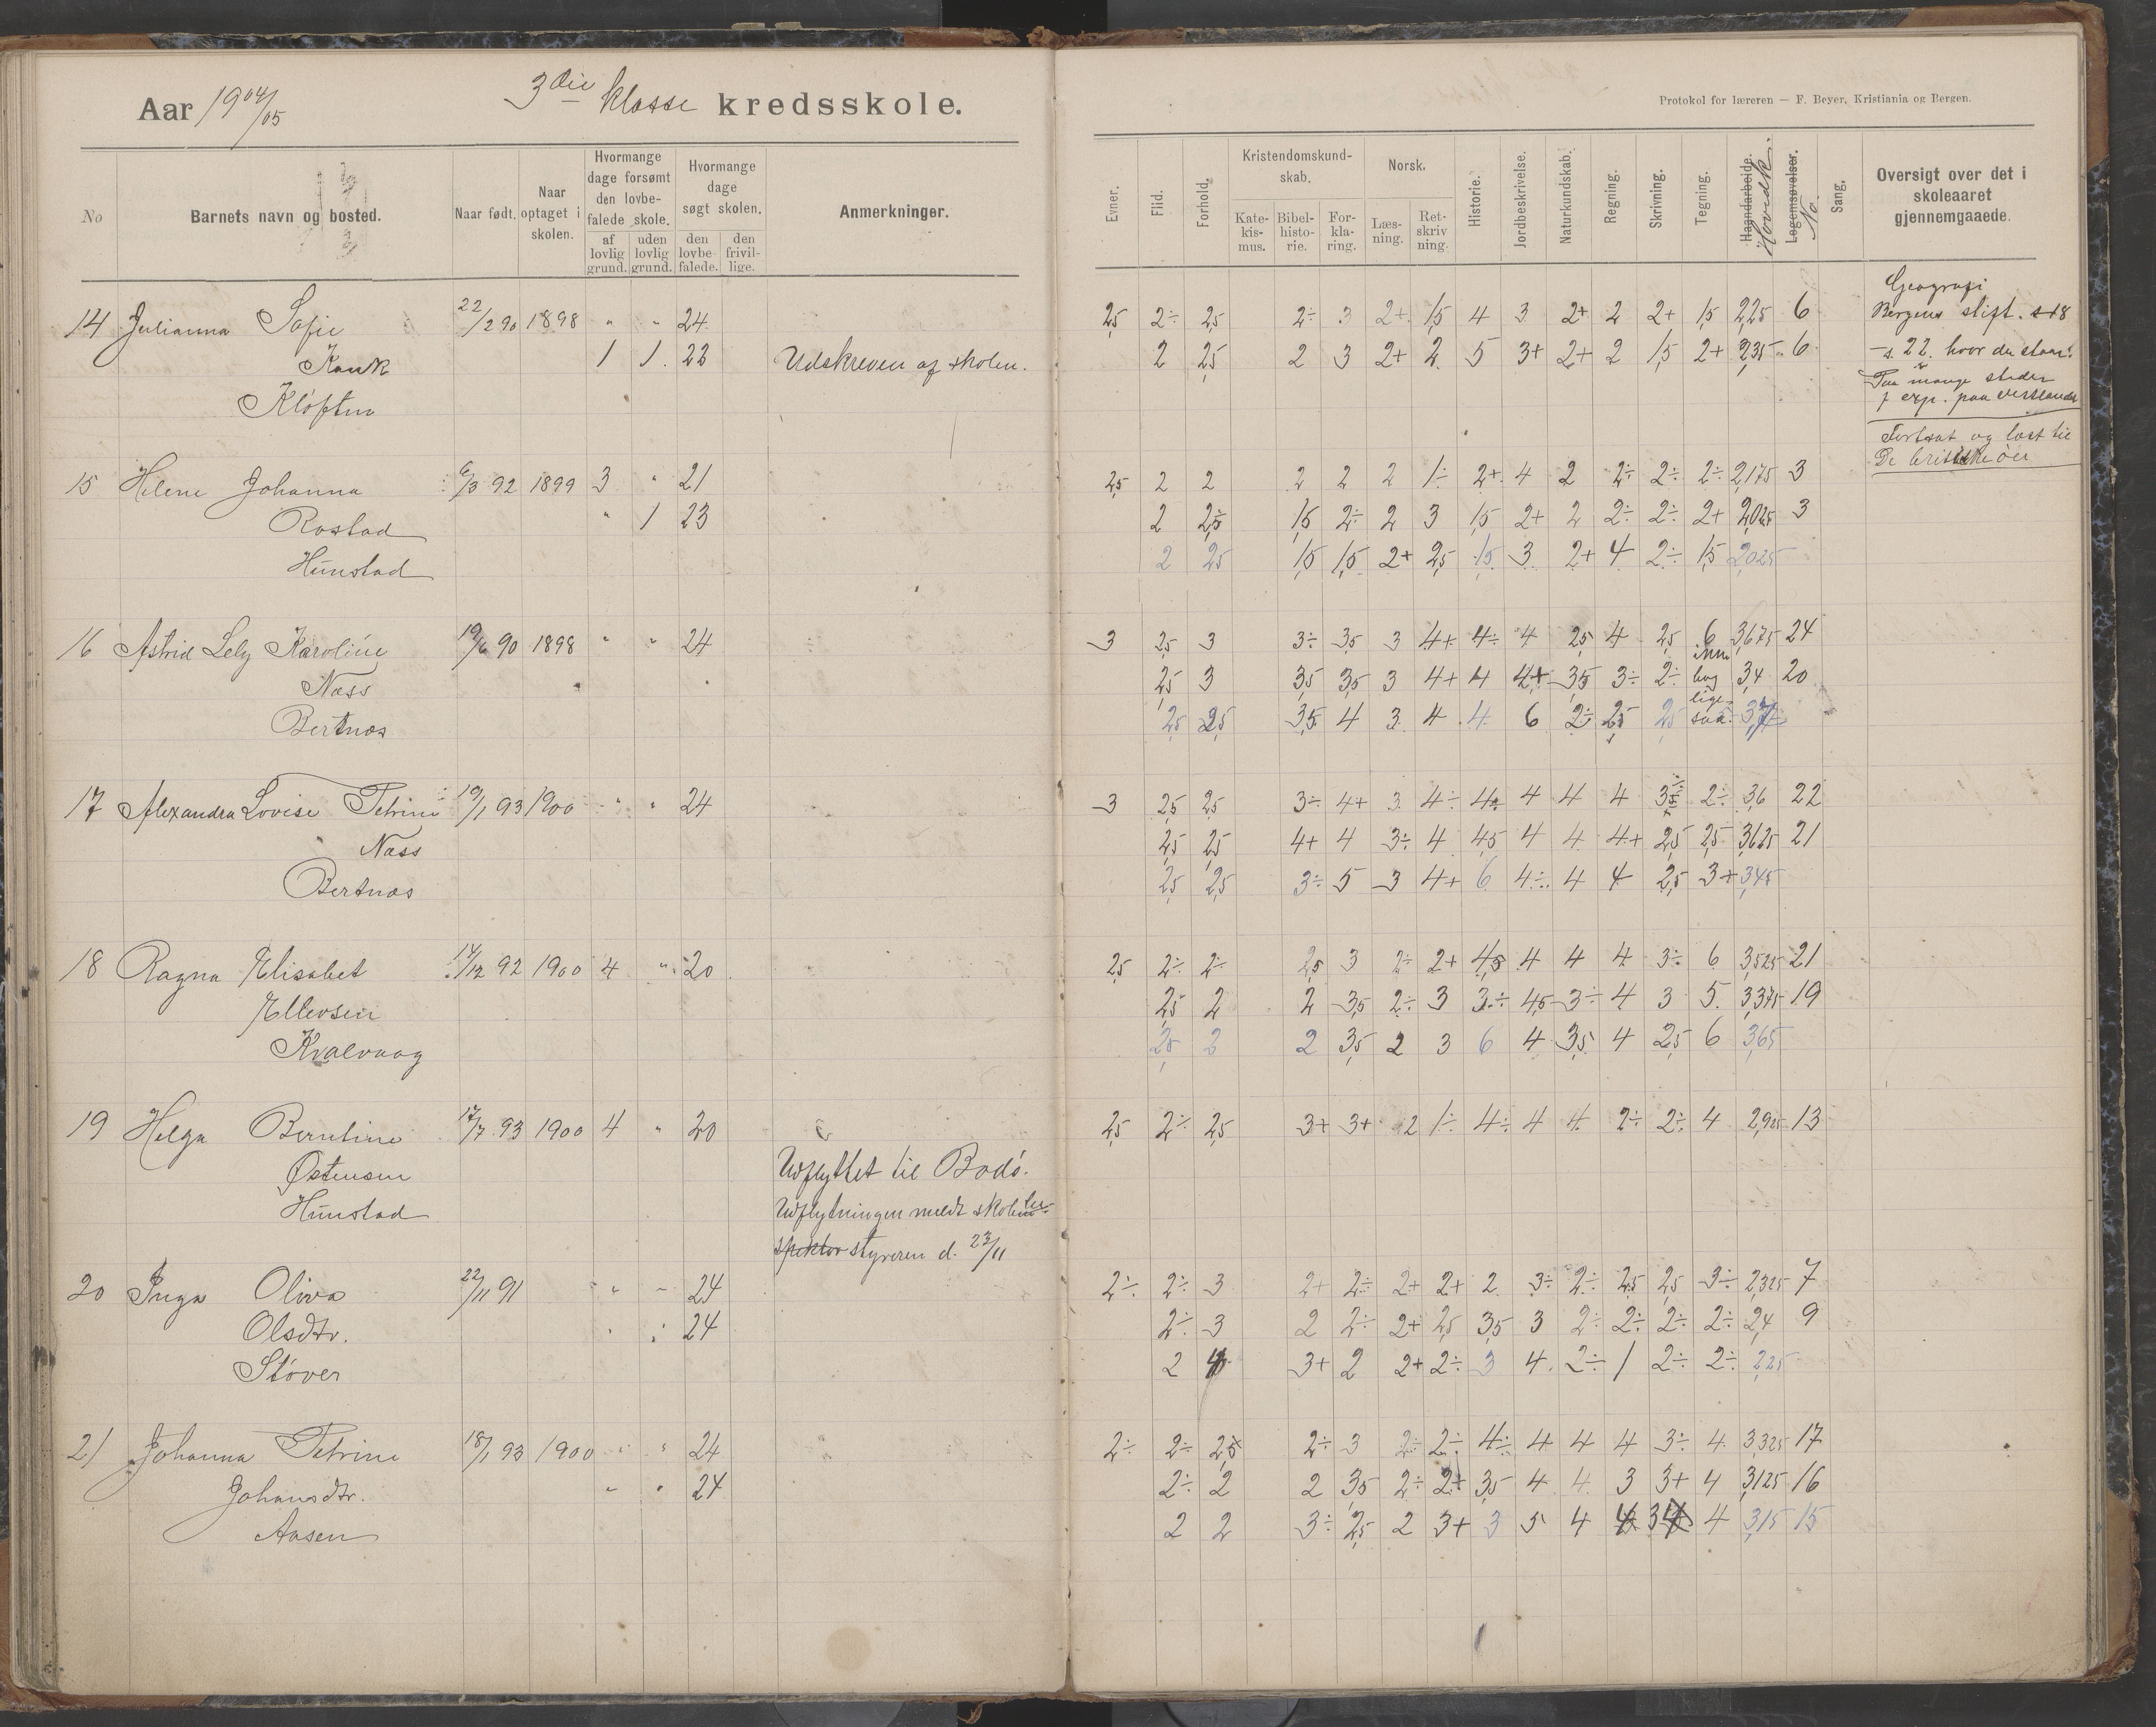 Aar 1904/05 3die klasse kredsskole.
Protokol for læreren — F. Beyer, Kristiania og Bergen.
No Barnets navn og bosted. Naar født. Naar optaget i skolen. Hvormange dage forsømt den lovbefalede skole. af lovlig grund. uden lovlig grund. Hvormange dage søgt skolen. den lovbefalede. den frivillige. Anmerkninger.
Evner. Flid. Forhold. Kristendomskundskab. Katekismus. Bibelhistorie. Forklaring. Norsk. Læsning. Retskrivning. Historie. Jordbeskrivelse. Naturkundskab. Regning. Skrivning. Tegning. Haandarbeide. Hovedk. Legemsøvelser. No. Sang. Oversigt over det i skoleaaret gjennemgaaede.
14 Julianna Sofie 22/2 90 1898 " " 24 2,5 2÷ 2,5 2÷ 3 2+ 1,5 4 3 2+ 2 2+ 1,5 2,25 6
Kank 1 1 22 Udskreven af skolen. 2 2,5 2 3 2+ 2 5 3+ 2+ 2 1,5 2+ 2,35 6
Kløften
Geografi
Bergens stift. s18
– s. 22. hvor du staar.
Paa mange steder
f exp. paa vestlandet
Fortsat og læst til
De britiske øer
15 Helene Johanna 6/3 92 1899 3 " 21 2,5 2 2 2 2 2 1÷ 2+ 4 2 2÷ 2÷ 2÷ 2,175 3
Rostad " 1 23 2 2,5 1,5 2÷ 2 3 1,5 2+ 2 2÷ 2÷ 2+ 2,025 3
Hunstad 2 2,5 1,5 1,5 2+ 2,5 1,5 3 2+ 4 2÷ 1,5 2,025
16 Astrid Lely Karoline 19/6 90 1898 " " 24 3 2,5 3 3÷ 3,5 3 4+ 4÷ 4 2,5 4 2,5 6 3,675 24
Næss 2,5 3 3,5 3,5 3 4+ 4 4+ 3,5 3÷ 2÷ 3,4 20
Bertnæs 2,5 2,5 3,5 4 3 4 4 6 2÷ 2,5 2,5 ligesaa
17 Alexandra Lovise Petrine 19/1 93 1900 " " 24 3 2,5 2,5 3÷ 4+ 3 4÷ 4 4 4 3,5 2÷ 3,6 22
Næss 2,5 2,5 4+ 4 3÷ 4 4,5 4 4 4+ 2,5 2,5 3,625 21
Bertnæs 2,5 2,5 3÷ 5 3 4+ 6 4÷ 4 4 2,5 3+ 3,45
18 Ragna Elisabet 14/12 92 1900 4 " 20 2,5 2÷ 2÷ 2,5 3 2÷ 2+ 4,5 4 4 4 3÷ 6 3,525 21
Ellevsen 2,5 2 2 3,5 2÷ 3 3÷ 4,5 3÷ 4 3 5 3,375 19
Kvalvaag 2,5 2 2 3,5 2 3 6 4 3,5 4 2,5 6 3,65
19 Helga Berntine 17/7 93 1900 4 " 20 2,5 2÷ 2,5 3+ 3+ 2 1÷ 4÷ 4 4 2÷ 2÷ 4 2,925 13
Østensen Udflyttet til Bodø.
Hunstad Udflytningen meldt skole
styreren d. 23/11
20 Inga Oliva 22/11 91 " – 24 2÷ 2÷ 3 2+ 2÷ 2+ 2+ 2 3÷ 2÷ 2,5 2,5 3÷ 2,325 7
Olsdtr. 24 2÷ 3 2 2÷ 2+ 2,5 3,5 3 2÷ 2÷ 2÷ 2÷ 2,4 9
Støver 2 4 3+ 2 2+ 2÷ 3 4 2÷ 1 2÷ 2÷ 2,25
21 Johanna Petrine 18/1 93 1900 " " 24 2÷ 2÷ 2,5 2÷ 3 2÷ 2÷ 4÷ 4 4 4 3÷ 4 3,325 17
Johansdtr. " " 24 2÷ 2 2 3,5 2÷ 2+ 3,5 4 4 3 3+ 4 3,125 16
Aasen 2 2 3÷ 2,5 2 3+ 3 5 4 4 3 4 3,15 15